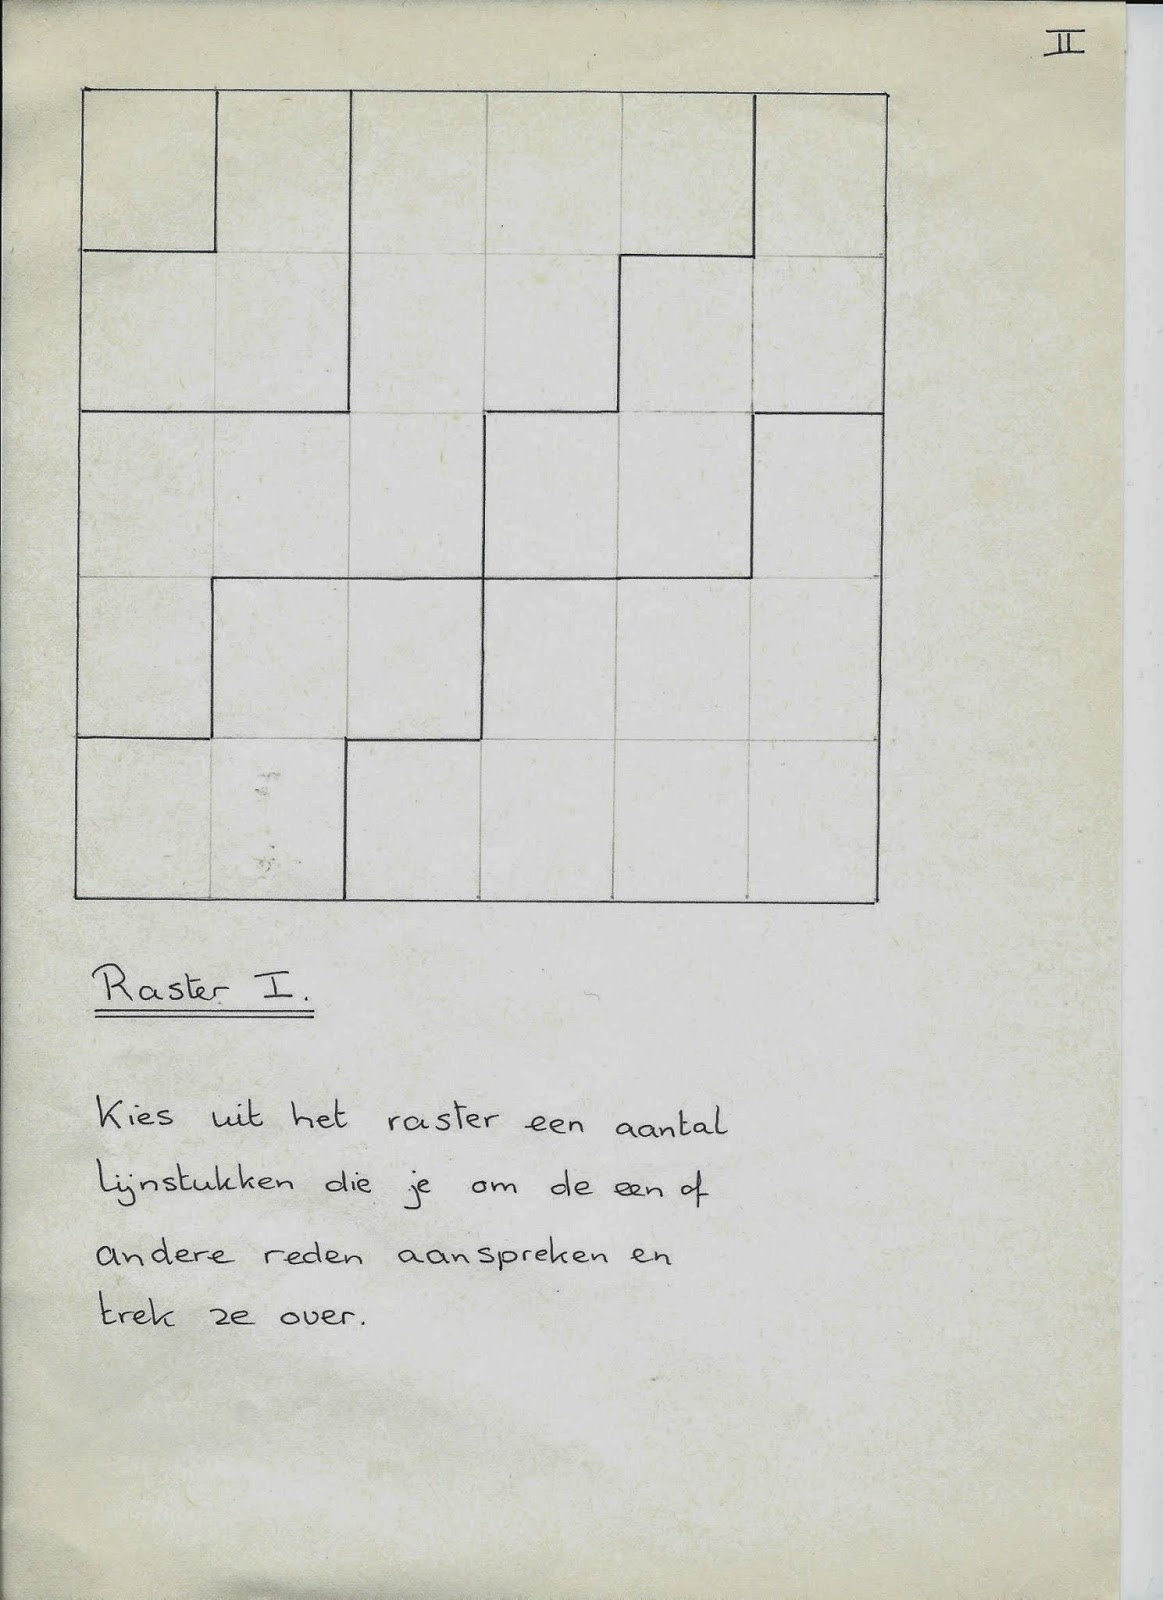 II
Raster I.
Kies uit het raster een aantal
lijnstukken die je om de een of
andere reden aanspreken en
trek ze over.